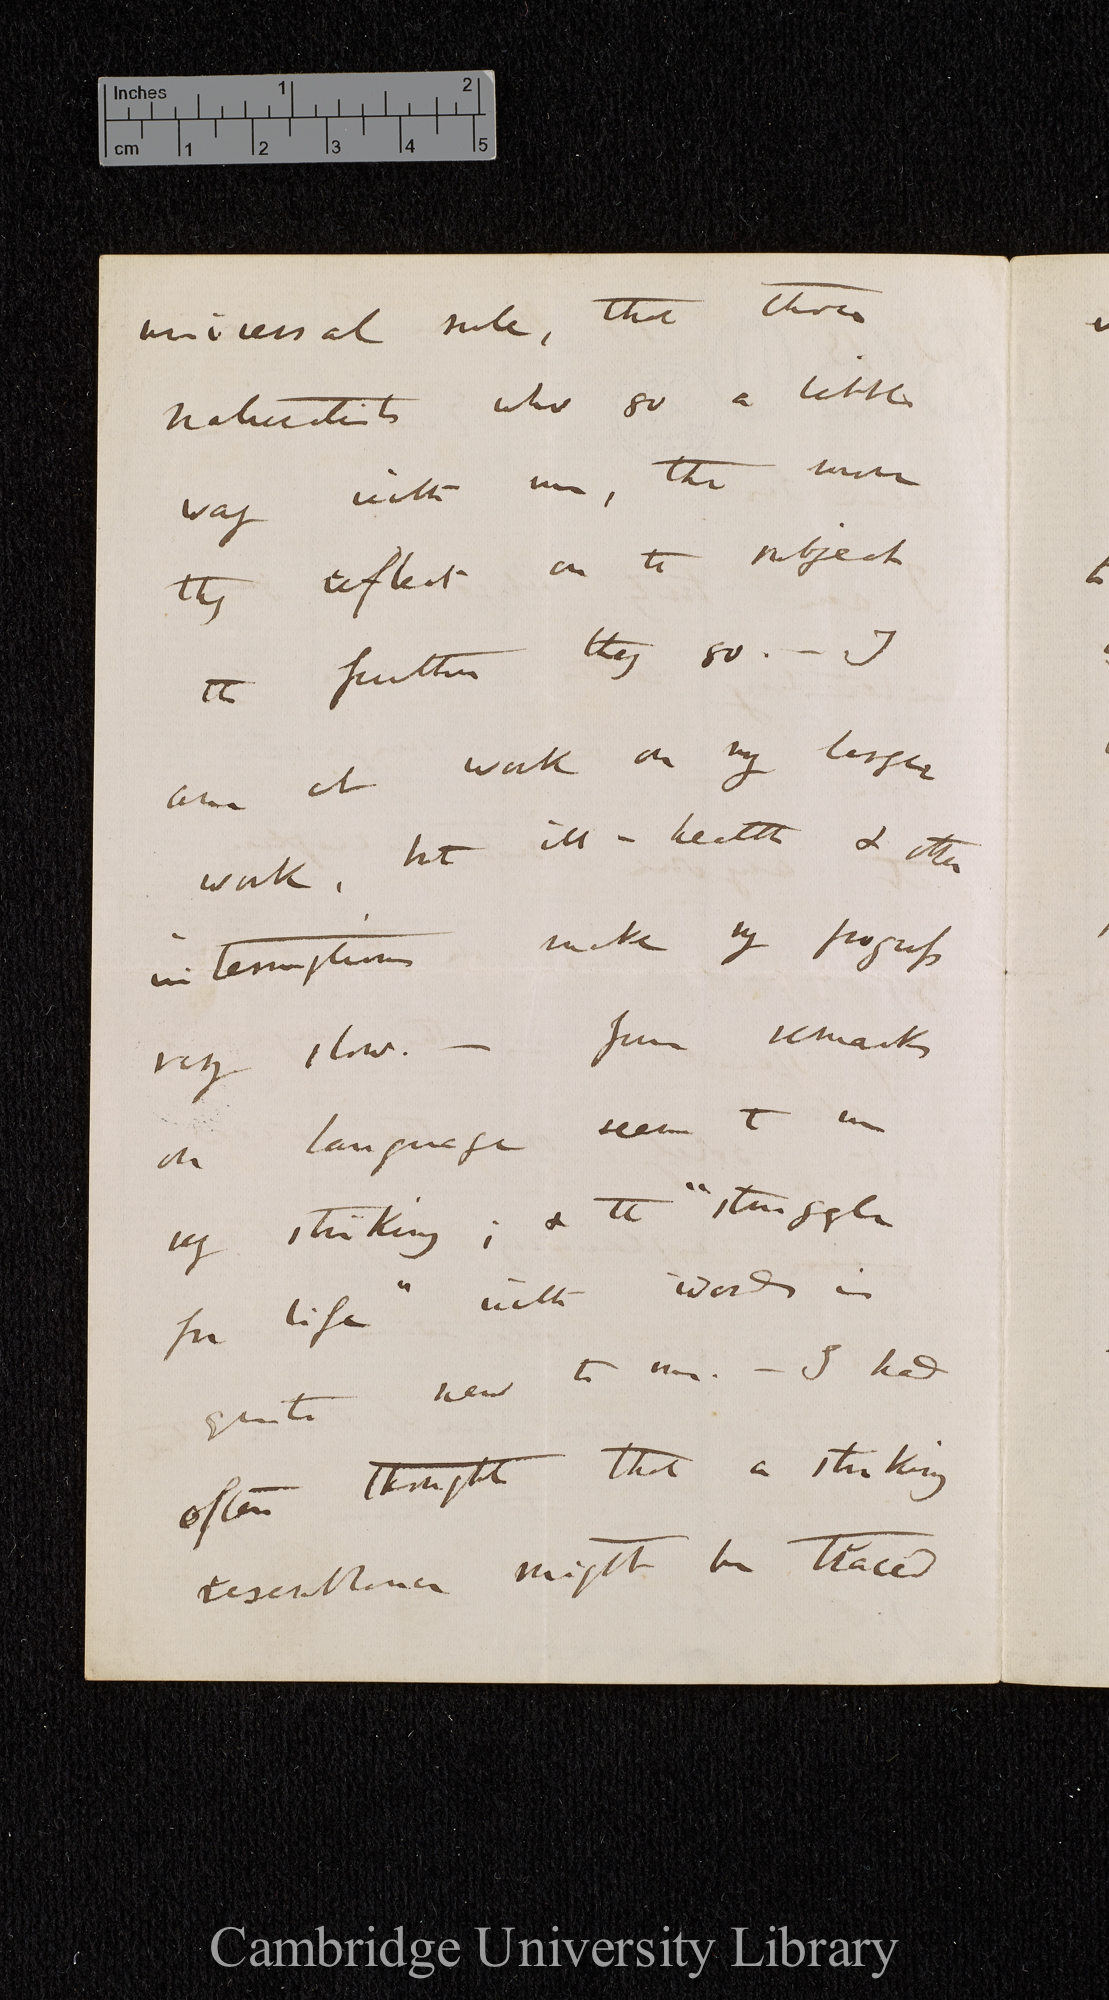 Inches 1 2
cm 1 2 3 4 5
universal rule, that those
naturalists who go a little
way with me, the more
they reflect on the subject
the further they go. — I
am at work on my larger
work, but ill-health & other
interruptions make my progress
very slow. — Your remarks
on language seem to me
very striking; & the "struggle
for life" with words is
quite new to me. — I had
often thought that a striking
resemblance might be traced
Cambridge University Library